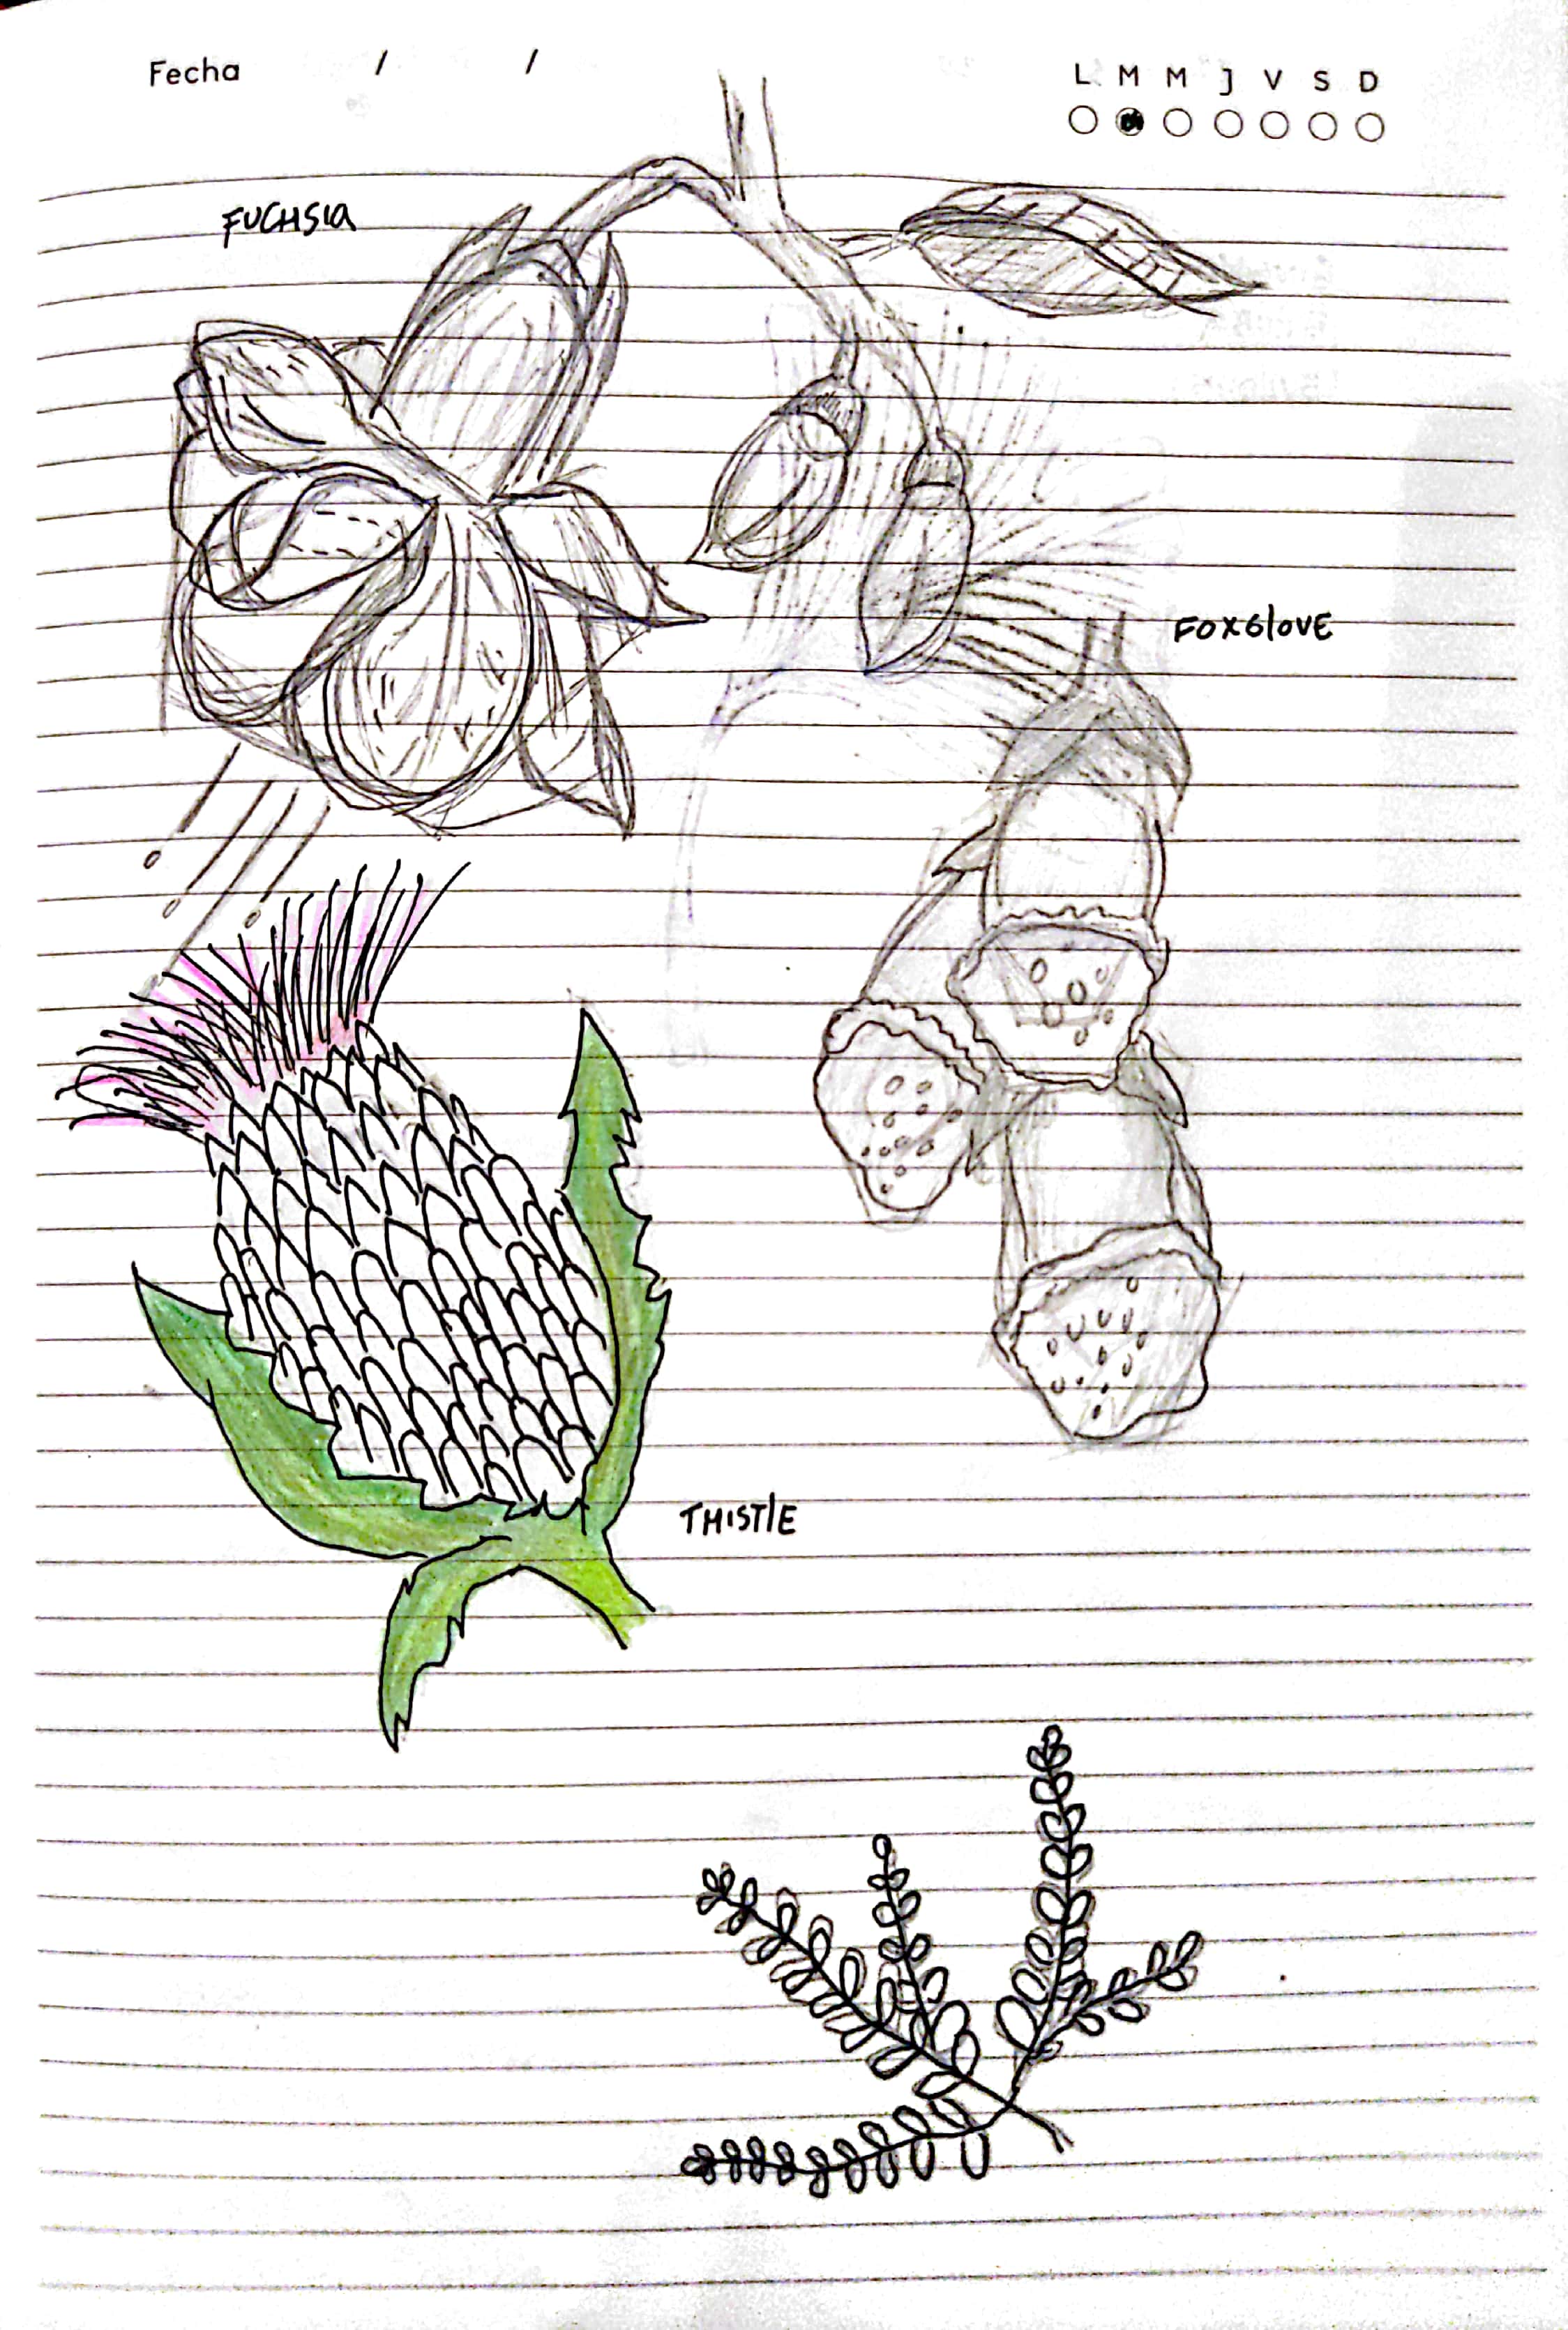 Fecha / /
L M M J V S D
FUCHSIA
FOXGLOVE
THISTLE